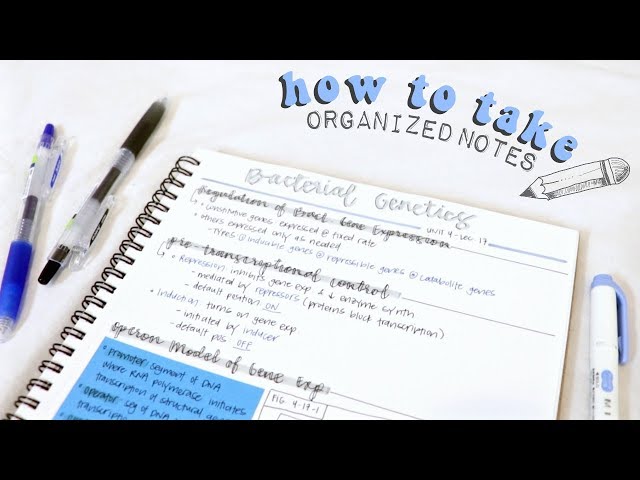 how to take
ORGANIZED NOTES
Bacterial Genetics
unit 4 - Lec 17
Regulation of Bact Gene Expression
• constitutive genes expressed @ fixed rate
• others expressed only as needed
- TYPES ① inducible genes ② repressible genes ③ catabolite genes
pre-transcriptional control
• Repression inhibits gene exp & ↓ enzyme synth
- mediated by repressors (proteins block transcription)
- default position ON
• Induction turns on gene exp
- initiated by inducer
- default pos OFF
Operon Model of Gene Exp
• promoter: segment of DNA
where RNA polymerase initiates
transcription of structural
• operator: seg of DNA
FIG 4-17-1